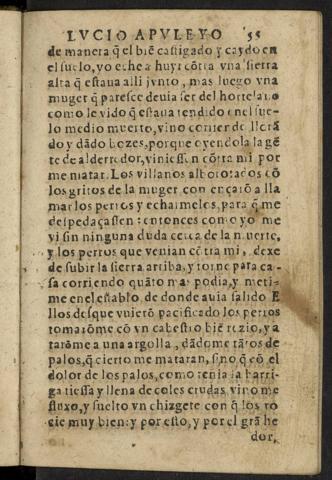 LVCIO APVLEYO 55
de manera q̃ el biẽ castigado y caydo en
el suelo, yo eche a huyr cõtra vna sierra
alta q̃ estaua alli junto, mas luego vna
muger q̃ paresce deuia ser del hortelano
como le vido q̃ estaua tendido enel sue-
lo medio muerto, vino correr de llorã
do y dãdo bozes, porque oyendola la gẽ
te de alderredor, viniessen cõtra mi por
me matar. Los villanos alborotados cõ
los gritos de la muger comẽçarõ a lla
mar los perros y echarmelos, para q̃ me
despedaçassen: entonces como yo me
vi sin ninguna duda cerca de la muerte,
y los perros que venian cõtra mi, dexe
de subir la sierra arriba, y torne para ca-
sa corriendo quãto mas podia, y meti-
me enel establo de donde auia salido. E
llos desque vuierõ pacificado los perros
tomarõme cõ vn cabestro biẽ rezio, y a
tarõme a vna argolla, dãdome tãtos de
palos, q̃ cierto me mataran, sino q̃ cõ el
dolor de los palos, como tenia la barri-
ga tiessa y llena de coles crudas, vino me
fluxo, y suelto vn chizgete con q̃ los ro
cie muy bien: y por esto, y por el grã he
dor,